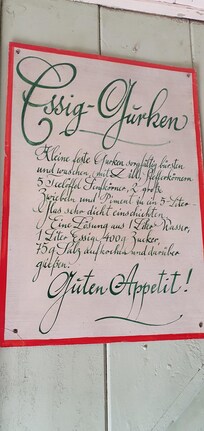 Essig-Gurken
Kleine feste Gurken sorgfältig bürsten
und waschen, mit 2 Pfefferkörnern
5 Teelöffel Senfkörner, 2 große
Zwiebeln und Piment in ein 5-Liter
Glas sehr dicht einschichten.
Eine Lösung aus 1 Liter Wasser,
1 Liter Essig, 400g Zucker,
75g Salz aufkochen und darüber
gießen.
Guten Appetit!